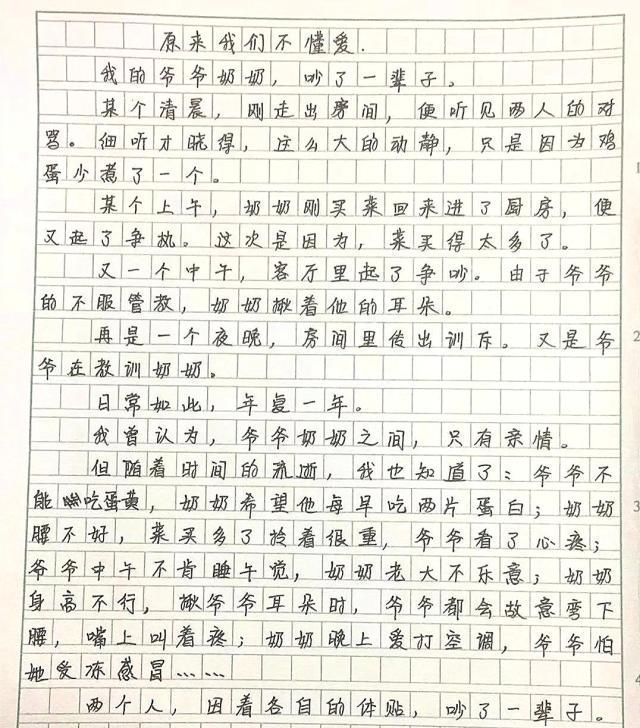 原来我们不懂爱.
我的爷爷奶奶，吵了一辈子。
某个清晨，刚走出房间，便听见两人的对
骂。细听才晓得，这么大的动静，只是因为鸡
蛋少煮了一个。
某个上午，奶奶刚买菜回来进了厨房，便
又起了争执。这次是因为，菜买得太多了。
又一个中午，客厅里起了争吵。由于爷爷
的不服管教，奶奶揪着他的耳朵。
再是一个夜晚，房间里传出训斥。又是爷
爷在教训奶奶。
日常如此，年复一年。
我曾认为，爷爷奶奶之间，只有亲情。
但随着时间的流逝，我也知道了：爷爷不
能吃蛋黄，奶奶希望他每早吃两片蛋白；奶奶
腰不好，菜买多了拎着很重，爷爷看了心疼；
爷爷中午不肯睡午觉，奶奶老大不乐意；奶奶
身高不行，揪爷爷耳朵时，爷爷都会故意弯下
腰，嘴上叫着疼；奶奶晚上爱打空调，爷爷怕
她受冻感冒……
两个人，因着各自的体贴，吵了一辈子。
1
2
3
4